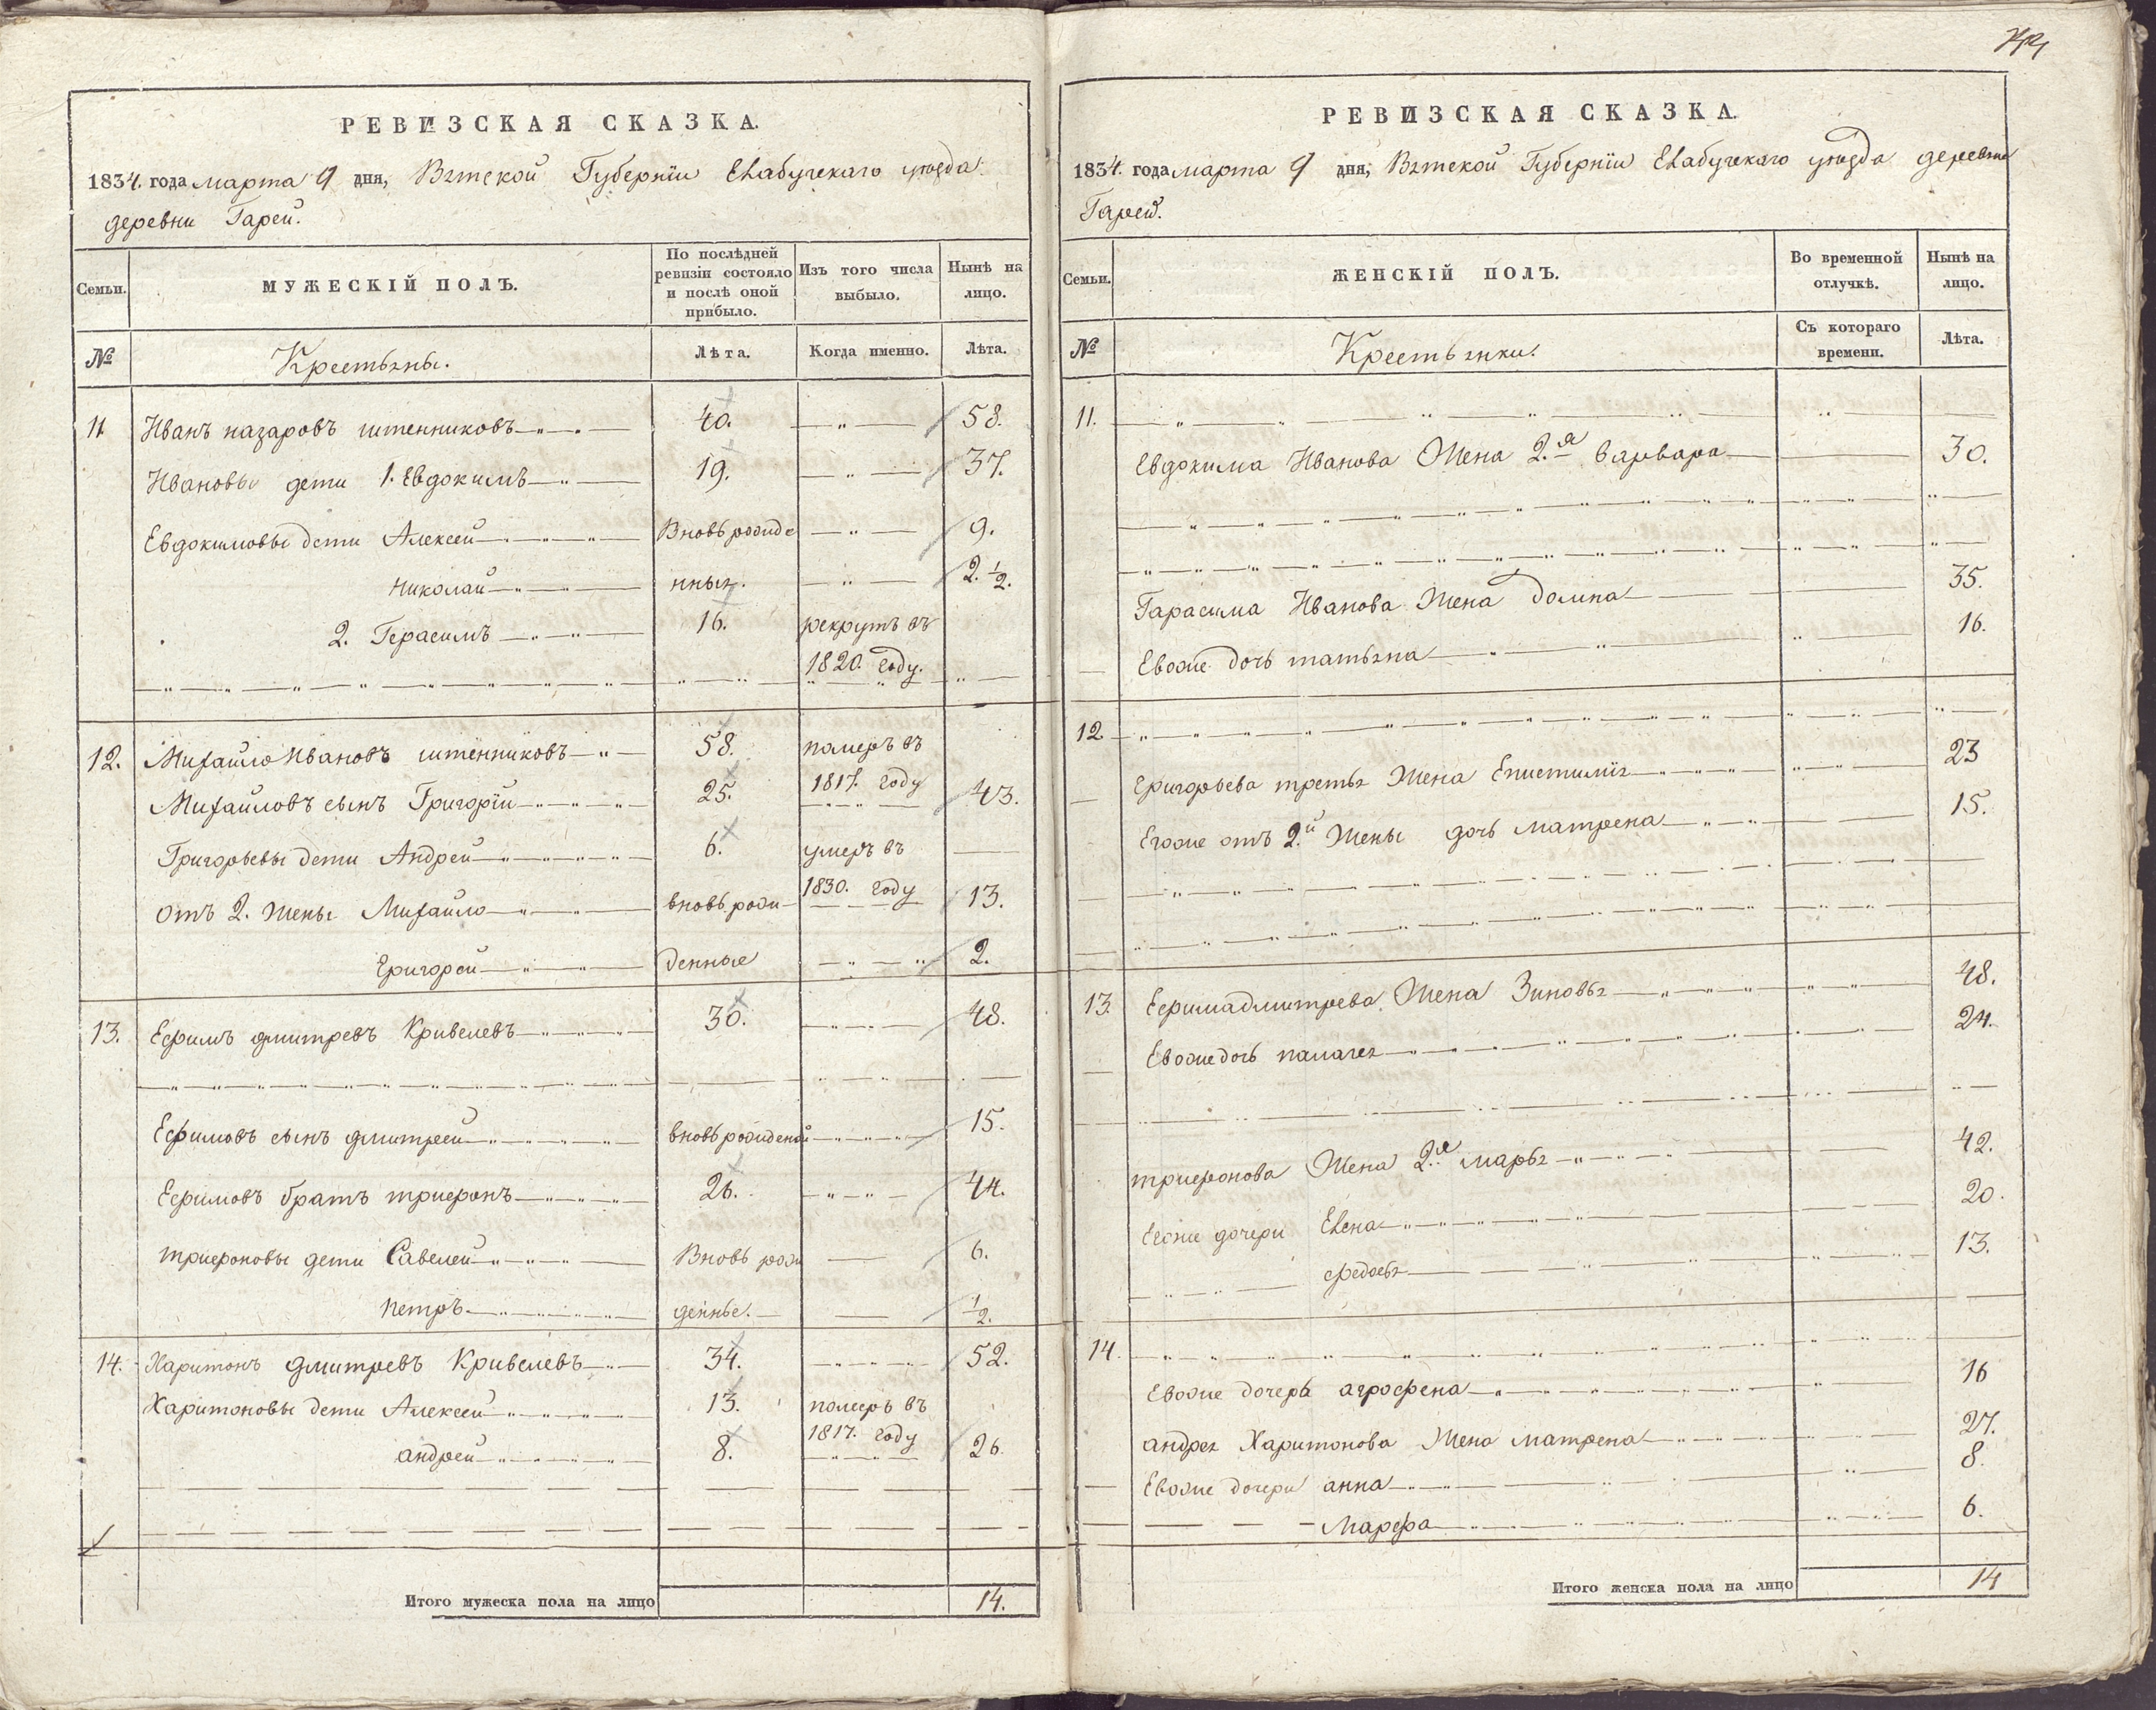 РЕВИЗСКАЯ СКАЗКА.
1834. года марта 9 дня, Вятской Губернїи Елабугскаго уѣзда
деревни Гарей.
Семьи.
МУЖЕСКІЙ ПОЛЪ.
По послѣдней
ревизіи состояло
и послѣ оной
прибыло.
Изъ того числа
выбыло.
Нынѣ на
лицо.
№
Крестьяны.
Лѣта.
Когда именно.
Лѣта.
11. Иванъ назаровъ штенниковъ 40. 58.
Ивановы дети 1. Евдокимъ 19. 37.
Евдокимовы дети Алексей Вновь рожде 9.
Николай нныя. 2. ½.
2. Герасимъ 16. рекрутъ въ
1820. году.
12. Михайло Ивановъ штенниковъ 58. померъ въ
1817. году
Михайловъ сынъ Григорїй 25. 43.
Григорьевы дети Андрей 6. умеръ въ
1830. году
отъ 2. жены Михайло вновь рож 13.
Григорей денные 2.
13. Ефимъ дмитревъ Кривелевъ 30. 48.
Ефимовъ сынъ дмитрей вновь рожденой 15.
Ефимовъ братъ трифонъ 26. 44.
трифоновы дети Савелей Вновь рож 6.
петръ денные. ½.
14. Харитонъ дмитревъ Кривелевъ 34. 52.
Харитоновы дети Алексей 13. померъ въ
1817. году
андрей 8. 26.
Итого мужеска пола на лицо 14.
РЕВИЗСКАЯ СКАЗКА.
1834. года марта 9 дня, Вятской Губернїи Елабугскаго уѣзда деревни
Гарей.
Семьи.
ЖЕНСКІЙ ПОЛЪ.
Во временной
отлучкѣ.
Нынѣ на
лицо.
№
Крестьянки.
Съ котораго
времени.
Лѣта.
11.
Евдокима Иванова Жена 2.я варвара 30.
Гарасима Иванова Жена домна 35.
Евоже дочь татьяна 16.
12.
Григорьева третья Жена Епистимїя 23
Егоже отъ 2.й Жены дочь матрена 15.
13. Ефима дмитрева Жена Зиновья 48.
Евоже дочь палагея 24.
трифонова Жена 2.я марья 42.
Егоже дочери Елена 20.
федосья 13.
14.
Евоже дочерь агрофена 16
андрея Харитонова Жена матрена 27.
Евоже дочери анна 8.
Марфа 6.
Итого женска пола на лицо 14